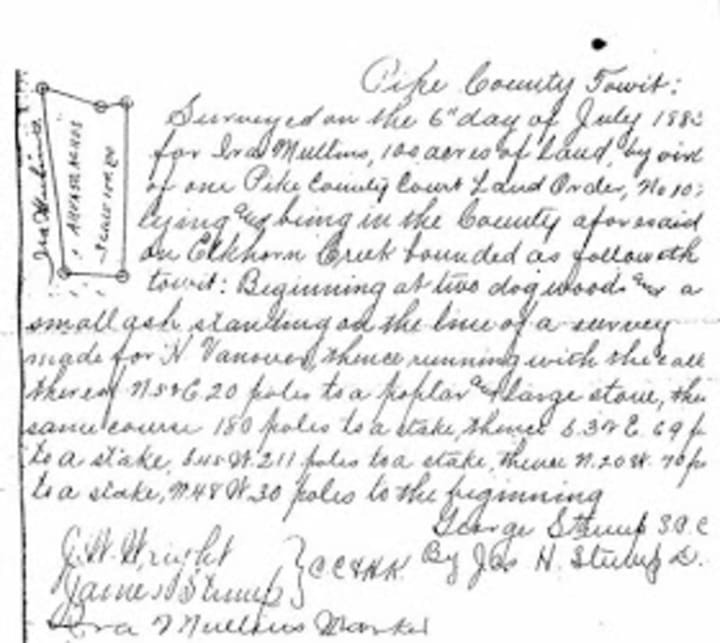 Pike County Towit:
Surveyed on the 6" day of July 188
for Ira Mullins, 100 acres of Land, by
of one Pike County Court Land Order, No 10
lying and being in the County aforesaid
on Elkhorn Creek bounded as followeth
towit: Beginning at two dogwoods and a
small ash standing on the line of a survey
made for H Vanover, thence running with the call
thereof N 5 E. 20 poles to a poplar and large stone, the
same course 180 poles to a stake, thence S. 32 E. 69 p
to a stake, S 48 W. 211 poles to a stake, thence N. 20 W. 70 p
to a stake, N 48 W. 30 poles to the beginning
George Stump S.P.C
J.W. Wright
By Jas H. Stump D.
James Stump
Ira Mullins Marker